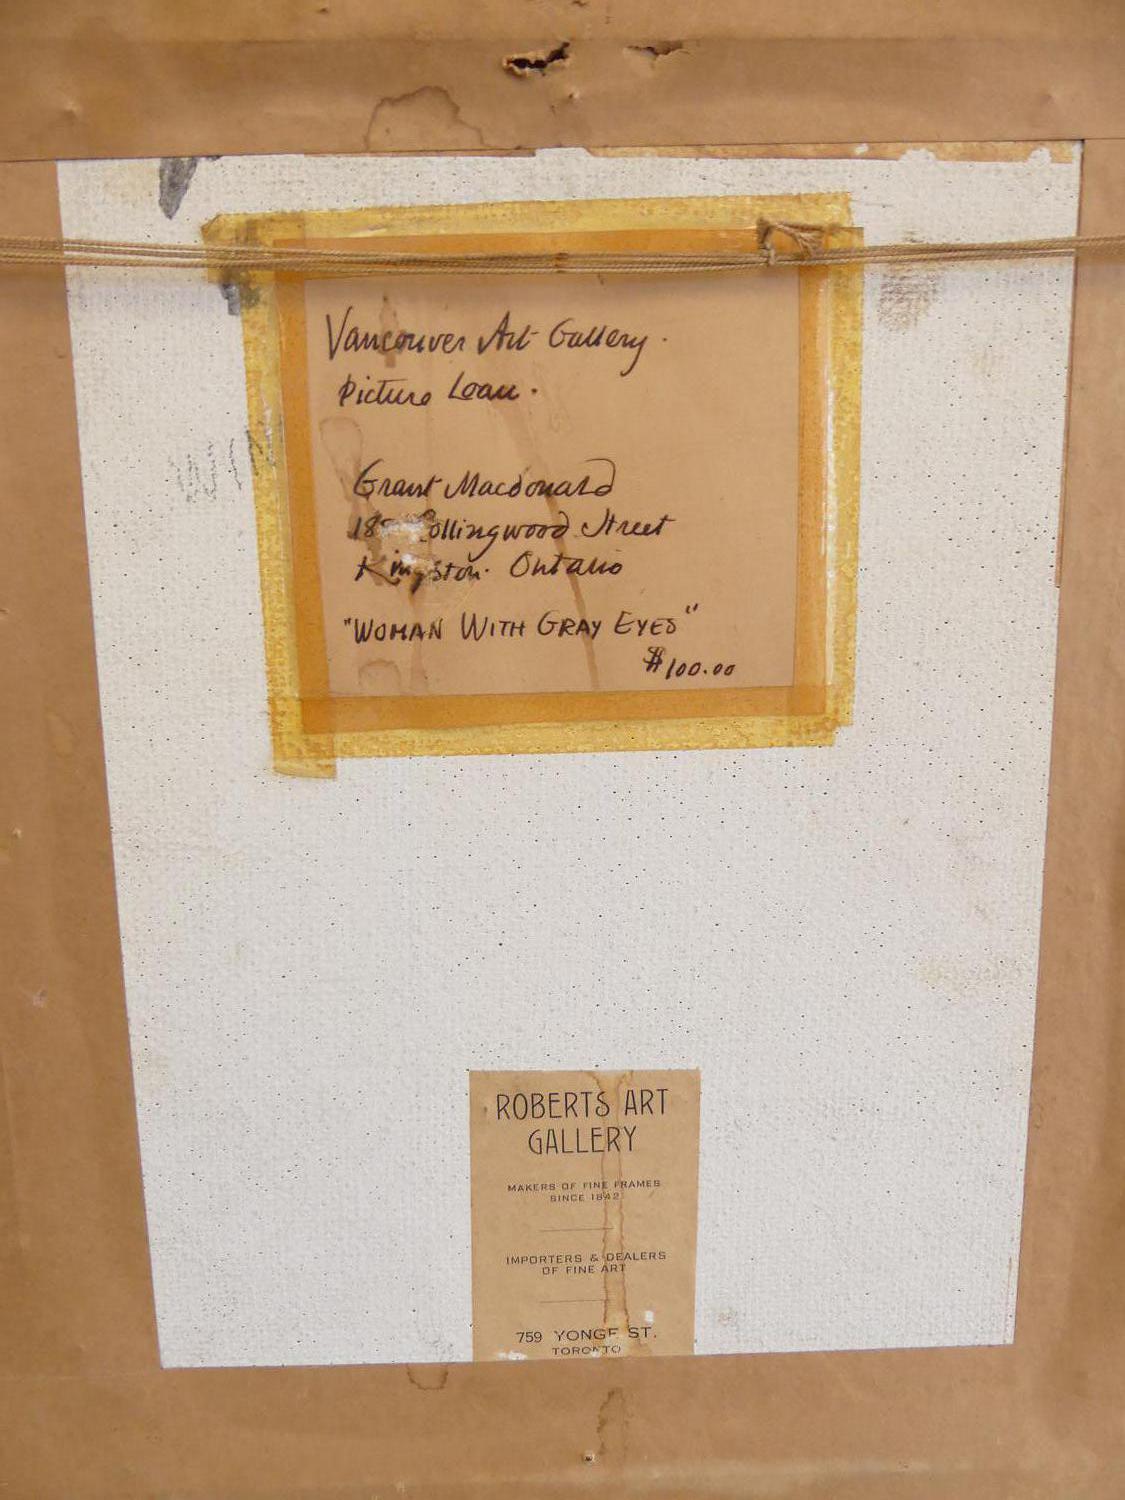 Vancouver Art Gallery.
Picture Loan.
Grant Macdonald
Collingwood Street
Kingston. Ontario
"WOMAN WITH GRAY EYES"
$100.00
WIN
ROBERTS ART
GALLERY
MAKERS OF FINE FRAMES
SINCE 1842
IMPORTERS & DEALERS
OF FINE ART
759 YONGE ST.
TORONTO